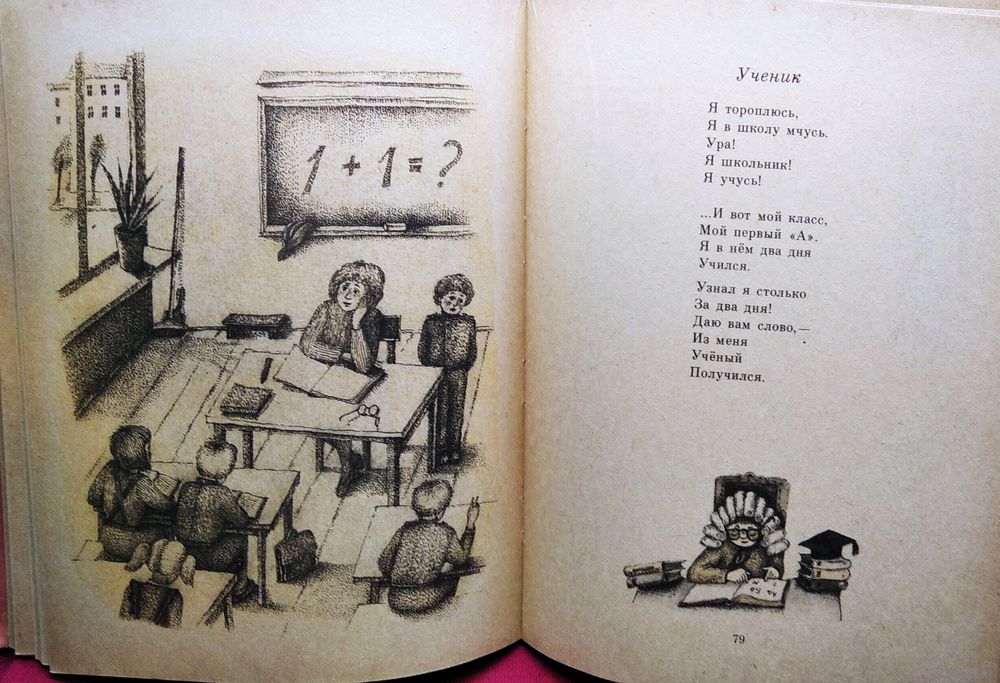 1 + 1 = ?
Ученик
Я тороплюсь,
Я в школу мчусь.
Ура!
Я школьник!
Я учусь!
...И вот мой класс,
Мой первый «А».
Я в нём два дня
Учился.
Узнал я столько
За два дня!
Даю вам слово,—
Из меня
Учёный
Получился.
79